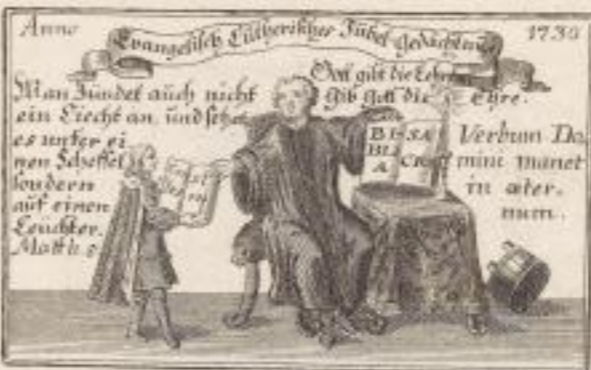 Anno
Evangelisch Lutherisches Jubel Gedächtnus
1730
Man Zündet auch nicht
ein Liecht an, und setzet
es unter ei
nen Scheffel
sondern
auf einen
Leüchter.
Matth. 5
Gott gibt die Lehre
Gib Gott die Ehre.
BI-
BLI
A
SA
CR
Verbum Do
mini manet
in æter-
num.